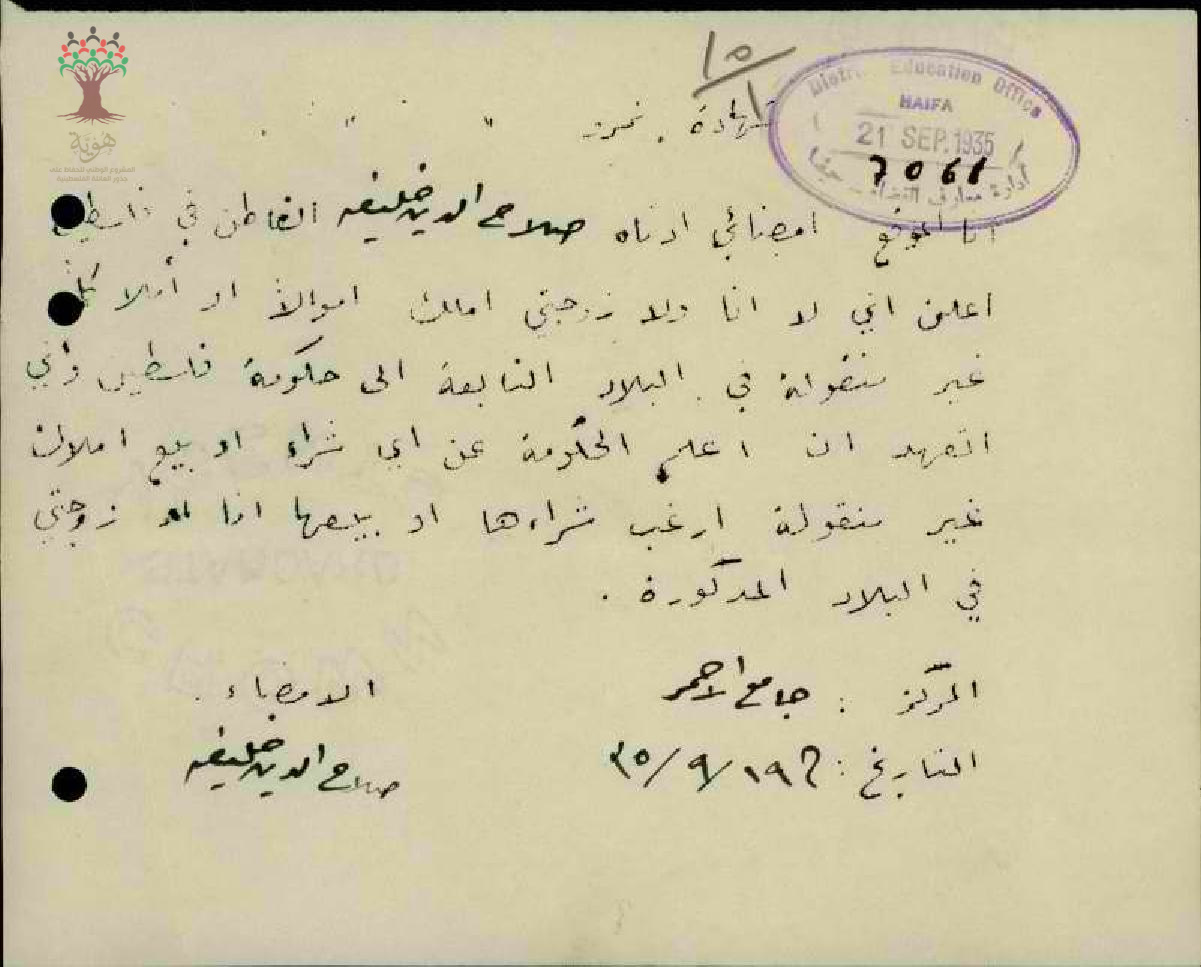 ١٥
١
District Education Office
HAIFA
21 SEP. 1935
7061
ادارة معارف القضاء - حيفا
هوية
المشروع الوطني للحفاظ على
جذور العائلة الفلسطينية
شهادة . نمرة " " "
انا الموقع امضائي ادناه صلاح الدين خليفه القاطن في فلسطين
اعلن اني لا انا ولا زوجتي املك اموالاً او أملاكاً
غير منقولة في البلاد التابعة الى حكومة فلسطين واني
اتعهد ان اعلم الحكومة عن اي شراء او بيع املاك
غير منقولة ارغب شراءها او بيعها انا او زوجتي
في البلاد المذكورة .
المركز : جامع الاحمر
الامضاء .
التاريخ :
صلاح الدين خليفه